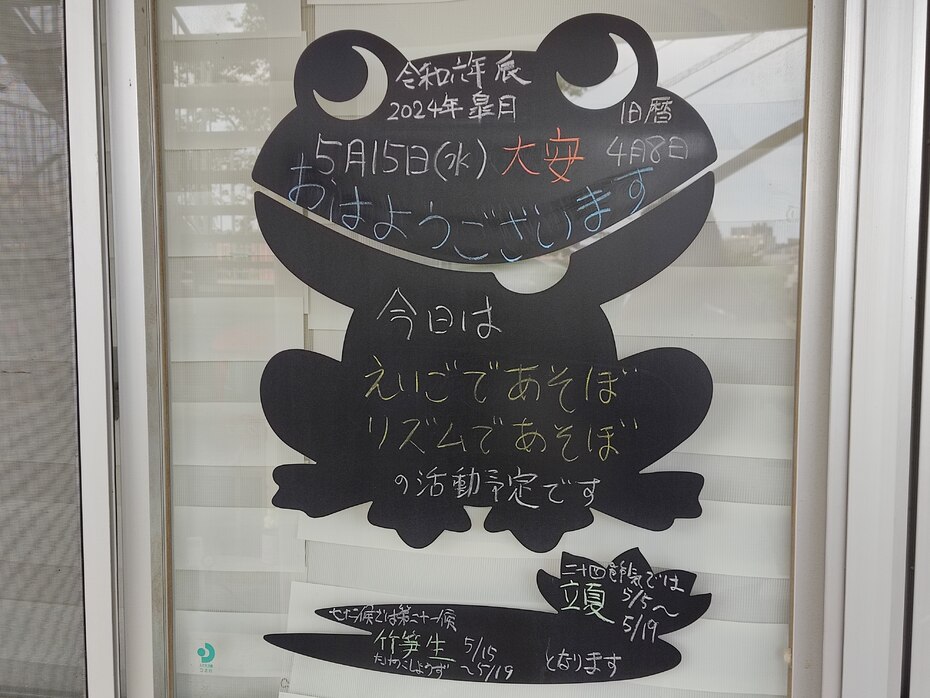 令和六年辰
2024年 皐月
旧暦
5月15日(水) 大安 4月8日
おはようございます
今日は
えいごであそぼ
リズムであそぼ
の活動予定です
二十四節気では
立夏 5/5〜
5/19
七十二候では第二十一候
竹笋生 5/15
たけのこしょうず 〜5/19
となります